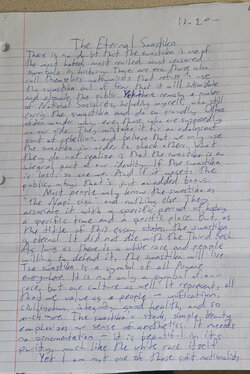 12-20-
The Eternal Swastika
There is no doubt that the swastika is one of
the most hated, most reviled, most censored
symbols in history. There are even those who
call themselves nationalists that refuse to use
the swastika out of fear that it will intimidate
and alienate the public. Yet there remains a number
of National Socialists, including myself, who still
carry the swastika and do so proudly. Often
others wonder why, even those who are supposedly
on our side. They mistake it for an adolescent
sort of rebellion, and believe that we only use
the swastika in order to shock others. What
they do not realize is that the swastika is an
integral part of our identity. If the swastika
is lost, so are we. And if it upsets the
public, why, that's just an added bonus.
Most people only know the swastika as
the "Nazi sign" and nothing else. They
associate it with a specific period of history,
a specific time and a specific place. But, as
the title of this essay states, the swastika
is eternal. It did not die with the Third Reich.
As long as there is a white race and people
willing to defend it, the swastika will live.
The swastika is a symbol of all Aryans
everywhere. It is not only a symbol of our
race, but our culture as well. It represents all
that we value as a people - unification,
civilization, integrity, good health, and so
much more. The swastika's stark, simple beauty
emphasizes our sense of aesthetics. It needs
no ornamentation - it is beautiful in its
purity, much like the white race itself.
Yet I am not one of those soft nationalists